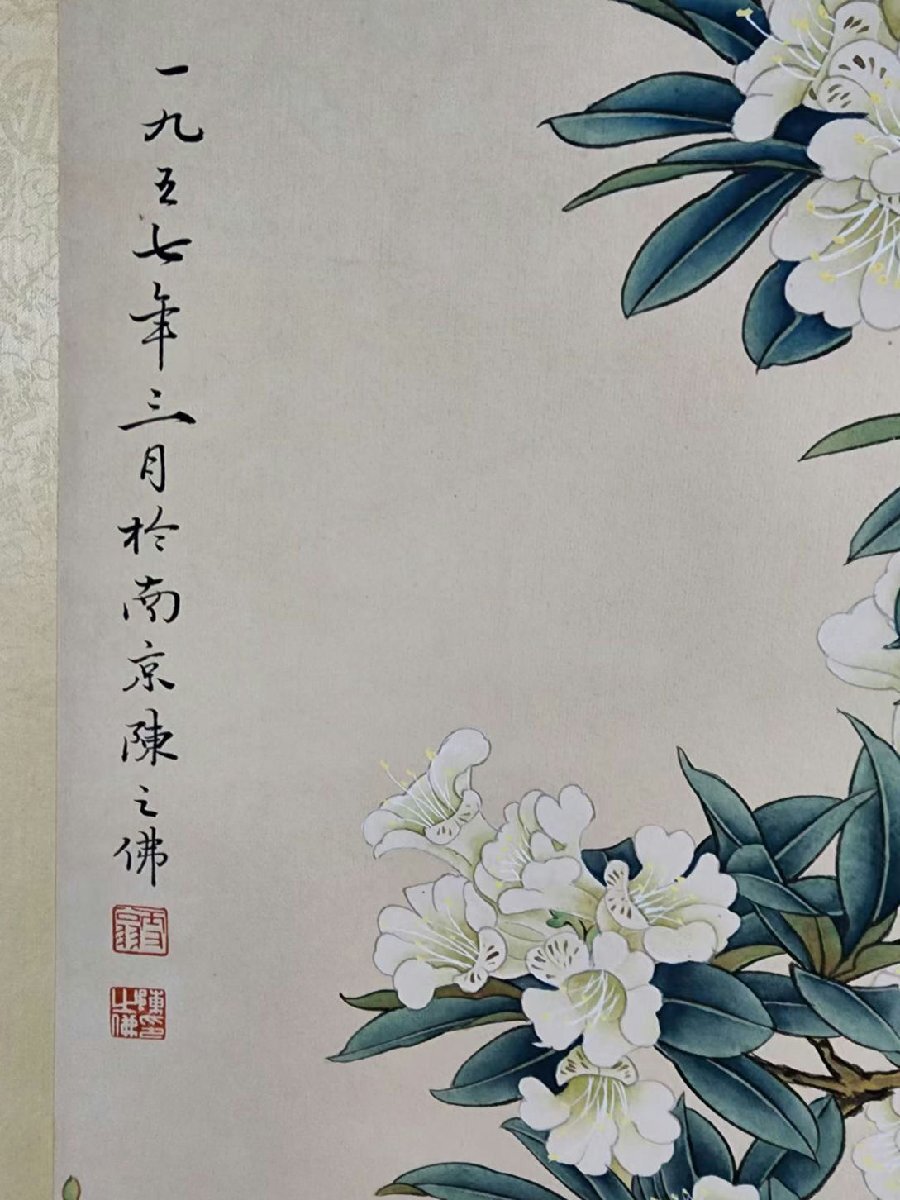 一九五七年三月於南京陳之佛